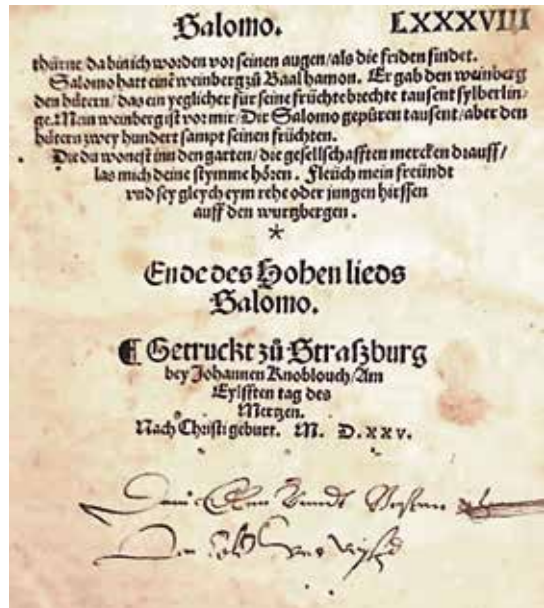 Salomo. LXXXVIII
thürne da bin ich worden vor seinen augen/als die friden findet.
Salomo hatt einē weinberg zů Baal hamon. Er gab den weinberg
den hütern/das ein yeglicher für seine früchte brechte tausent sylberlin-
ge. Mein weinberg ist vor mir/Dir Salomo gepüren tausent/aber den
hütern zwey hundert sampt seinen früchten.
Die du wonest inn den garten/die gesellschafften mercken drauff/
las mich deine stymme hören. Fleüch mein freündt
vnd sey gleych eym rehe oder jungen hirssen
auff den wurtzbergen.
*
Ende des Hohen lieds
Salomo.
¶ Getruckt zů Straßburg
bey Johannen Knoblouch/Am
Eylfften tag des
Mertzen.
Nach Christi geburt. M. D. xxv.